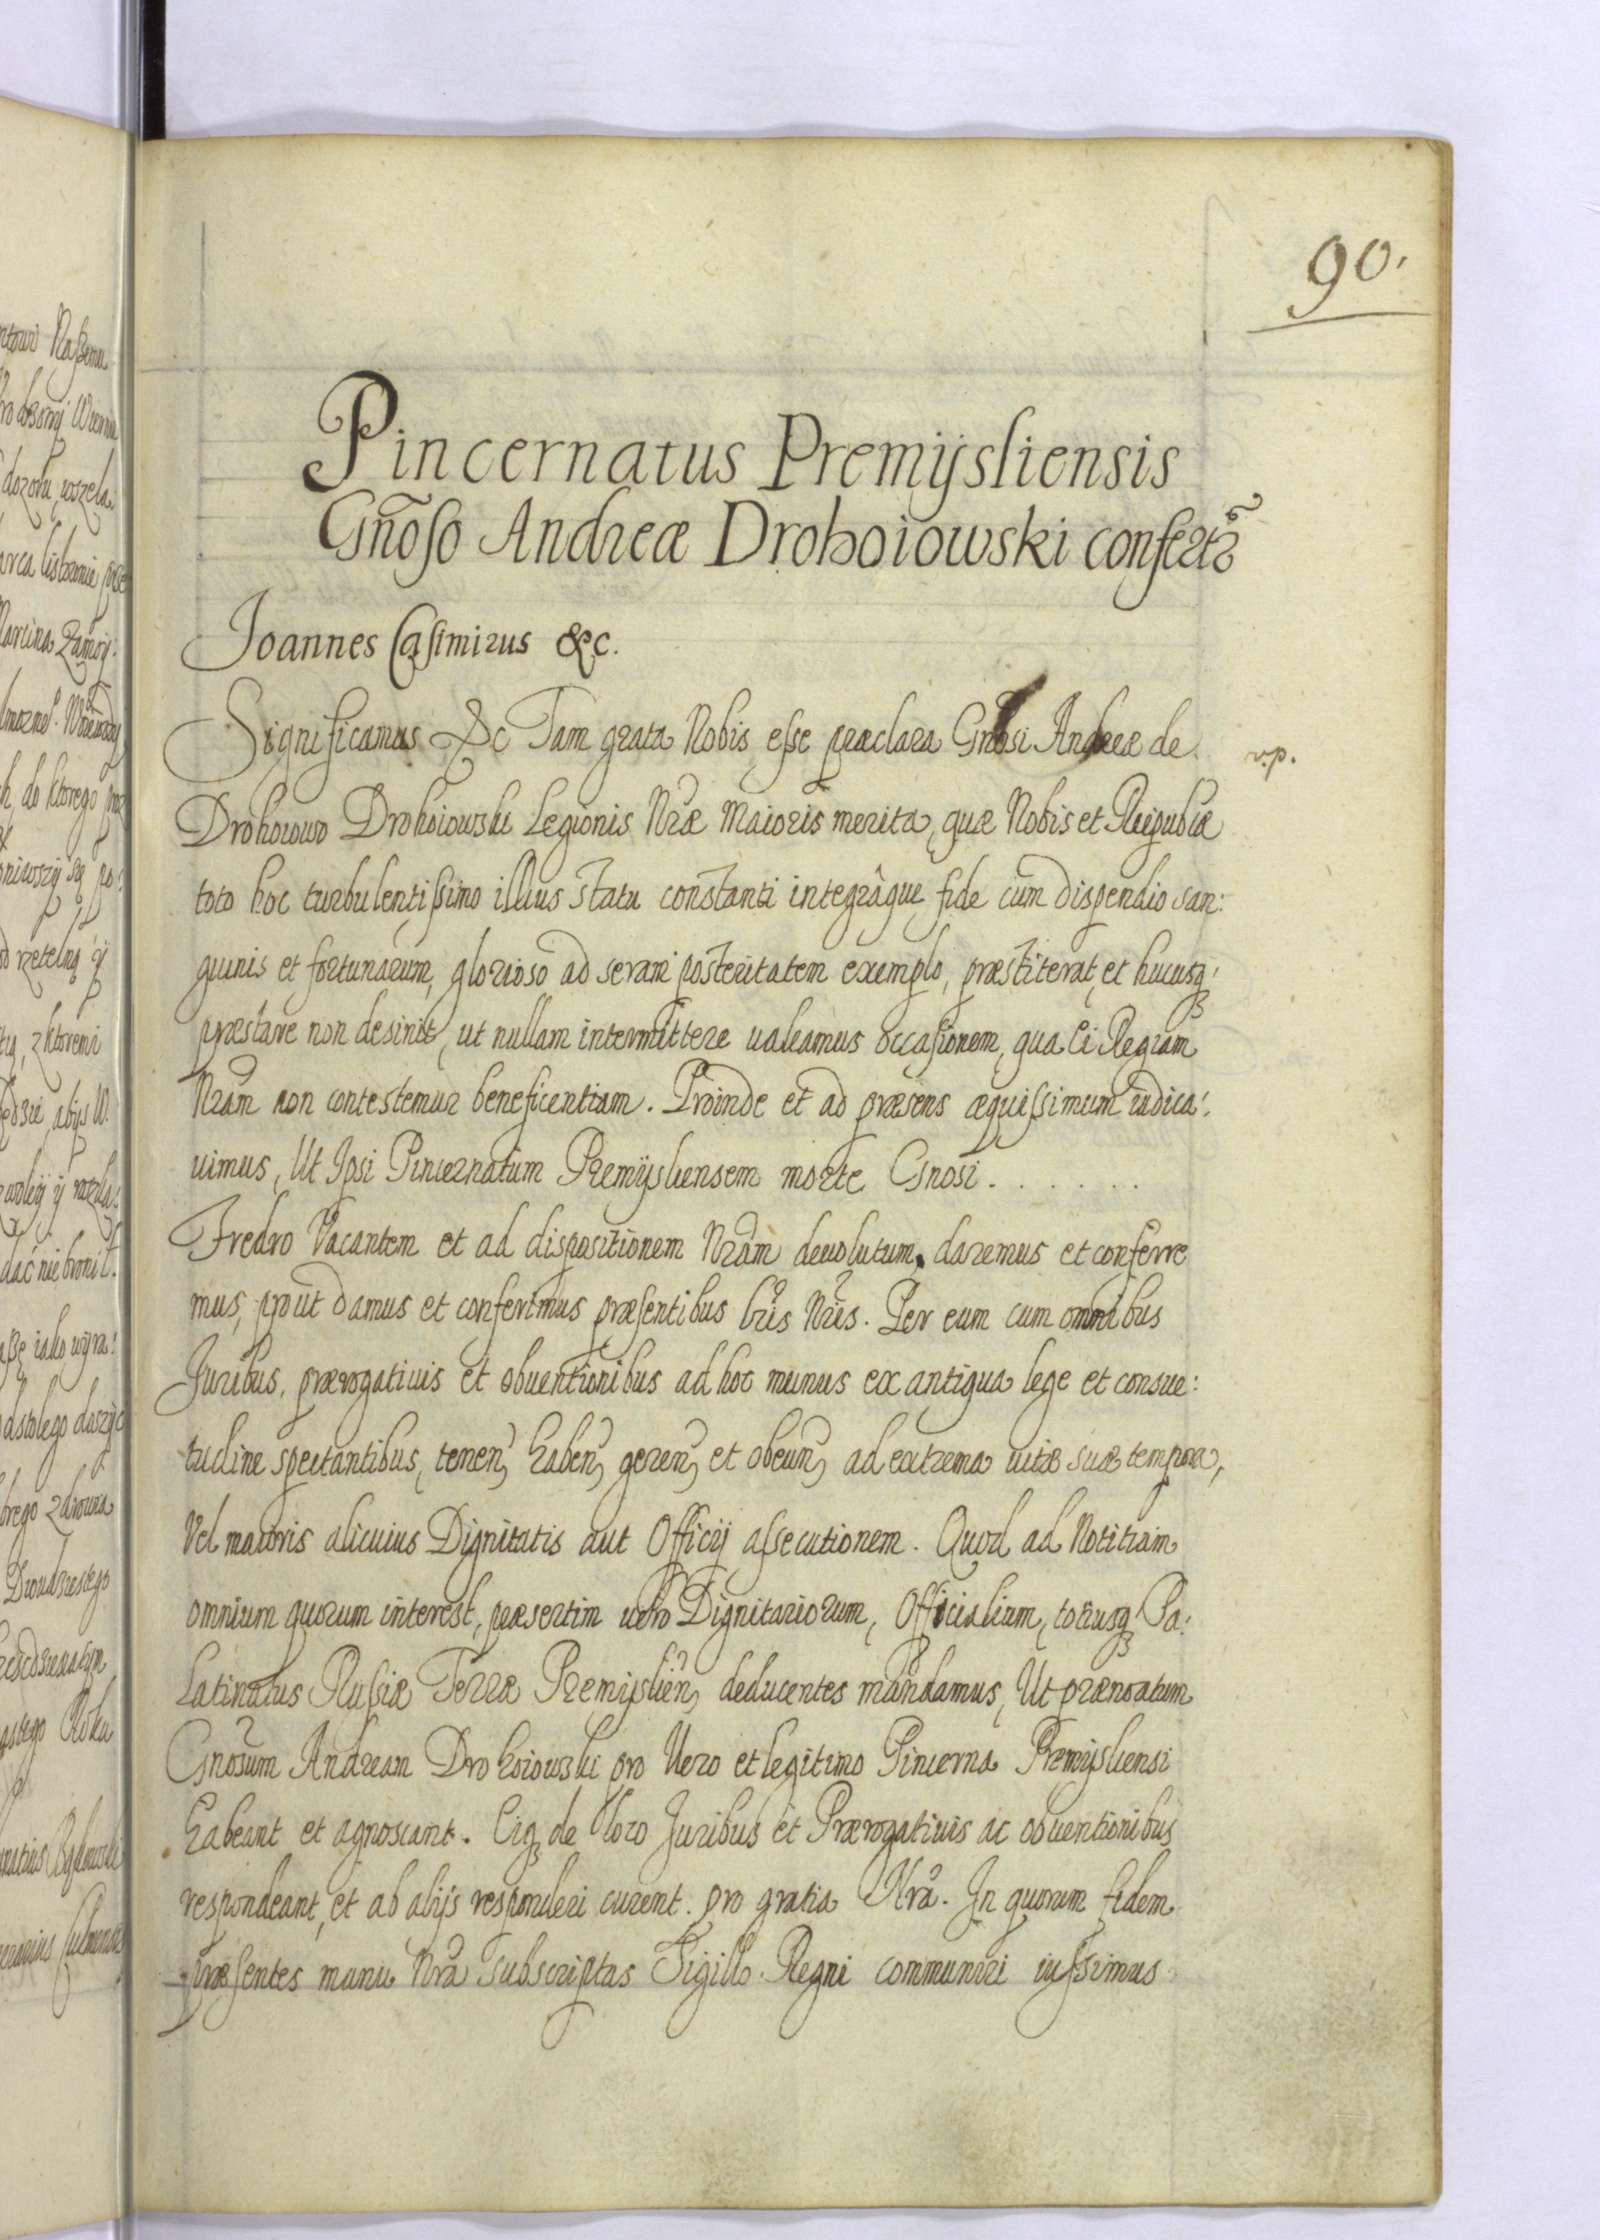 90.
Pincernatus Premÿsliensis
Gnõso Andreæ Drohoiowski confertr
Joannes Casimirus &c.
Significamus &c Tam grata Nobis esse præclara Gnosi Andreæ de
v.p.
Drohoiowo Drohoiowski Legionis Nræ Maioris merita, quæ Nobis et Reipublæ
toto hoc turbulentissimo illius statu constanti integrâque fide cum dispendio san:
guinis et fortunarum, glorioso ad seram posteritatem exemplo, præstiterat, et hucusq;
præstare non desinit, ut nullam intermittere ualeamus occasionem, qua Ei Regiam
Nram non contestemur beneficentiam. Proinde et ad præsens æquissimum iudica:
uimus, Ut Ipsi Pincernatum Premÿsliensem morte Gnosi . . . . . .
Fredro Vacantem et ad dispositionem Nram deuolutum, daremus et conferre
mus, prout damus et conferimus præsentibus lris Nris. Per eum cum omnibus
Juribus, prærogatiuis et obuentionibus ad hoc munus ex antiqua lege et consue:
tudine spectantibus, tenen, haben, geren, et obeun, ad extrema uitæ suæ tempora,
Vel maioris alicuius Dignitatis aut Officij assecutionem. Quod ad Notitiam
omnium quorum interest, præsertim uero Dignitariorum, Officialium, totiusq; Pa:
latinatus Russiæ Terræ Premÿslien, deducentes mandamus, Ut prænoatum
Gnosum Andream Drohoiowski pro Uero et legitimo Pincerna Premÿsliensi
habeant et agnoscant. Eiq; de Toro Juribus et Prærogatiuis ac obuentionibus
respondeant, et ab alijs responderi curent. pro gratia Nra. In quorum fidem
præsentes manu Nra subscriptas Sigillo Regni communiri iussimus